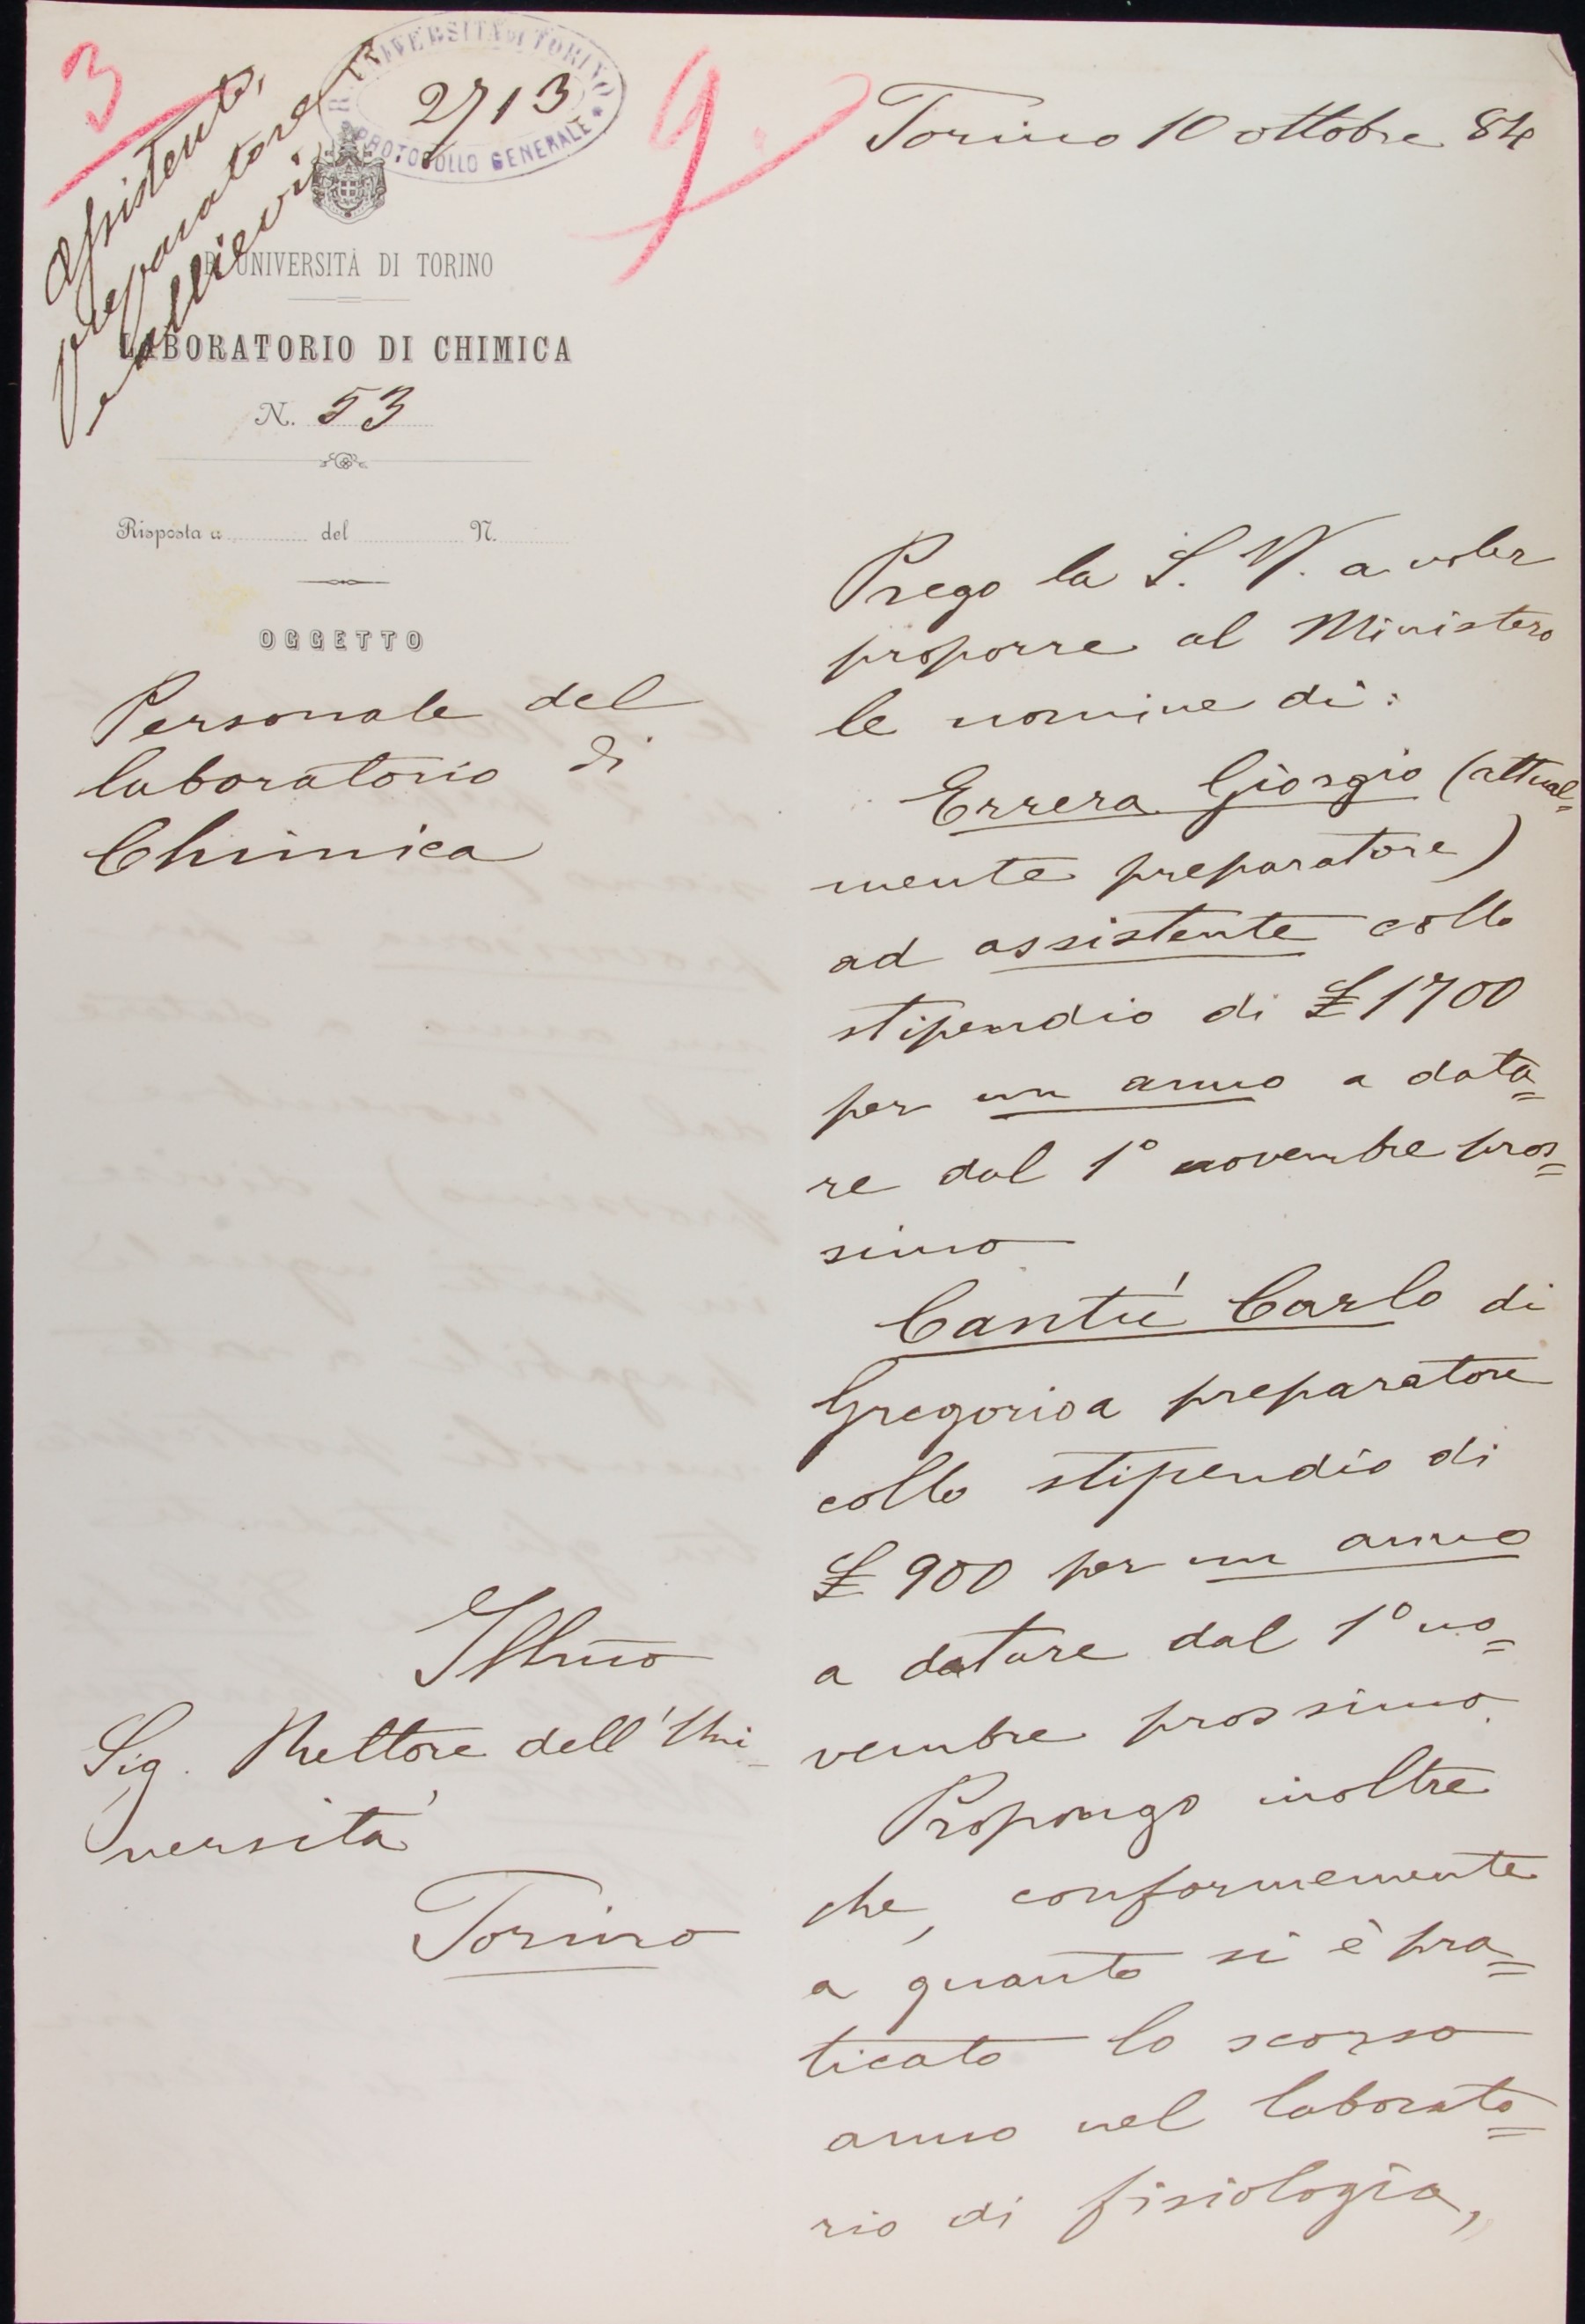 3
Assistente,
preparatore
e allievi
R. UNIVERSITÀ DI TORINO
PROTOCOLLO GENERALE
2713
9.
R. UNIVERSITÀ DI TORINO
LABORATORIO DI CHIMICA
N. 53
Risposta a del N.
OGGETTO
Personale del
laboratorio di
Chimica
Illmo
Sig. Rettore dell'Uni-
versità
Torino
Torino 10 ottobre 84
Prego la S. V. a voler
proporre al Ministero
le nomine di:
Errera Giorgio (attual=
mente preparatore)
ad assistente collo
stipendio di £ 1700
per un anno a data=
re dal 1° novembre pros=
simo
Cantù Carlo di
Gregorio a preparatore
collo stipendio di
£ 900 per un anno
a datare dal 1° no=
vembre prossimo.
Propongo inoltre
che, conformemente
a quanto si è pra=
ticato lo scorso
anno nel laborato=
rio di fisiologia,